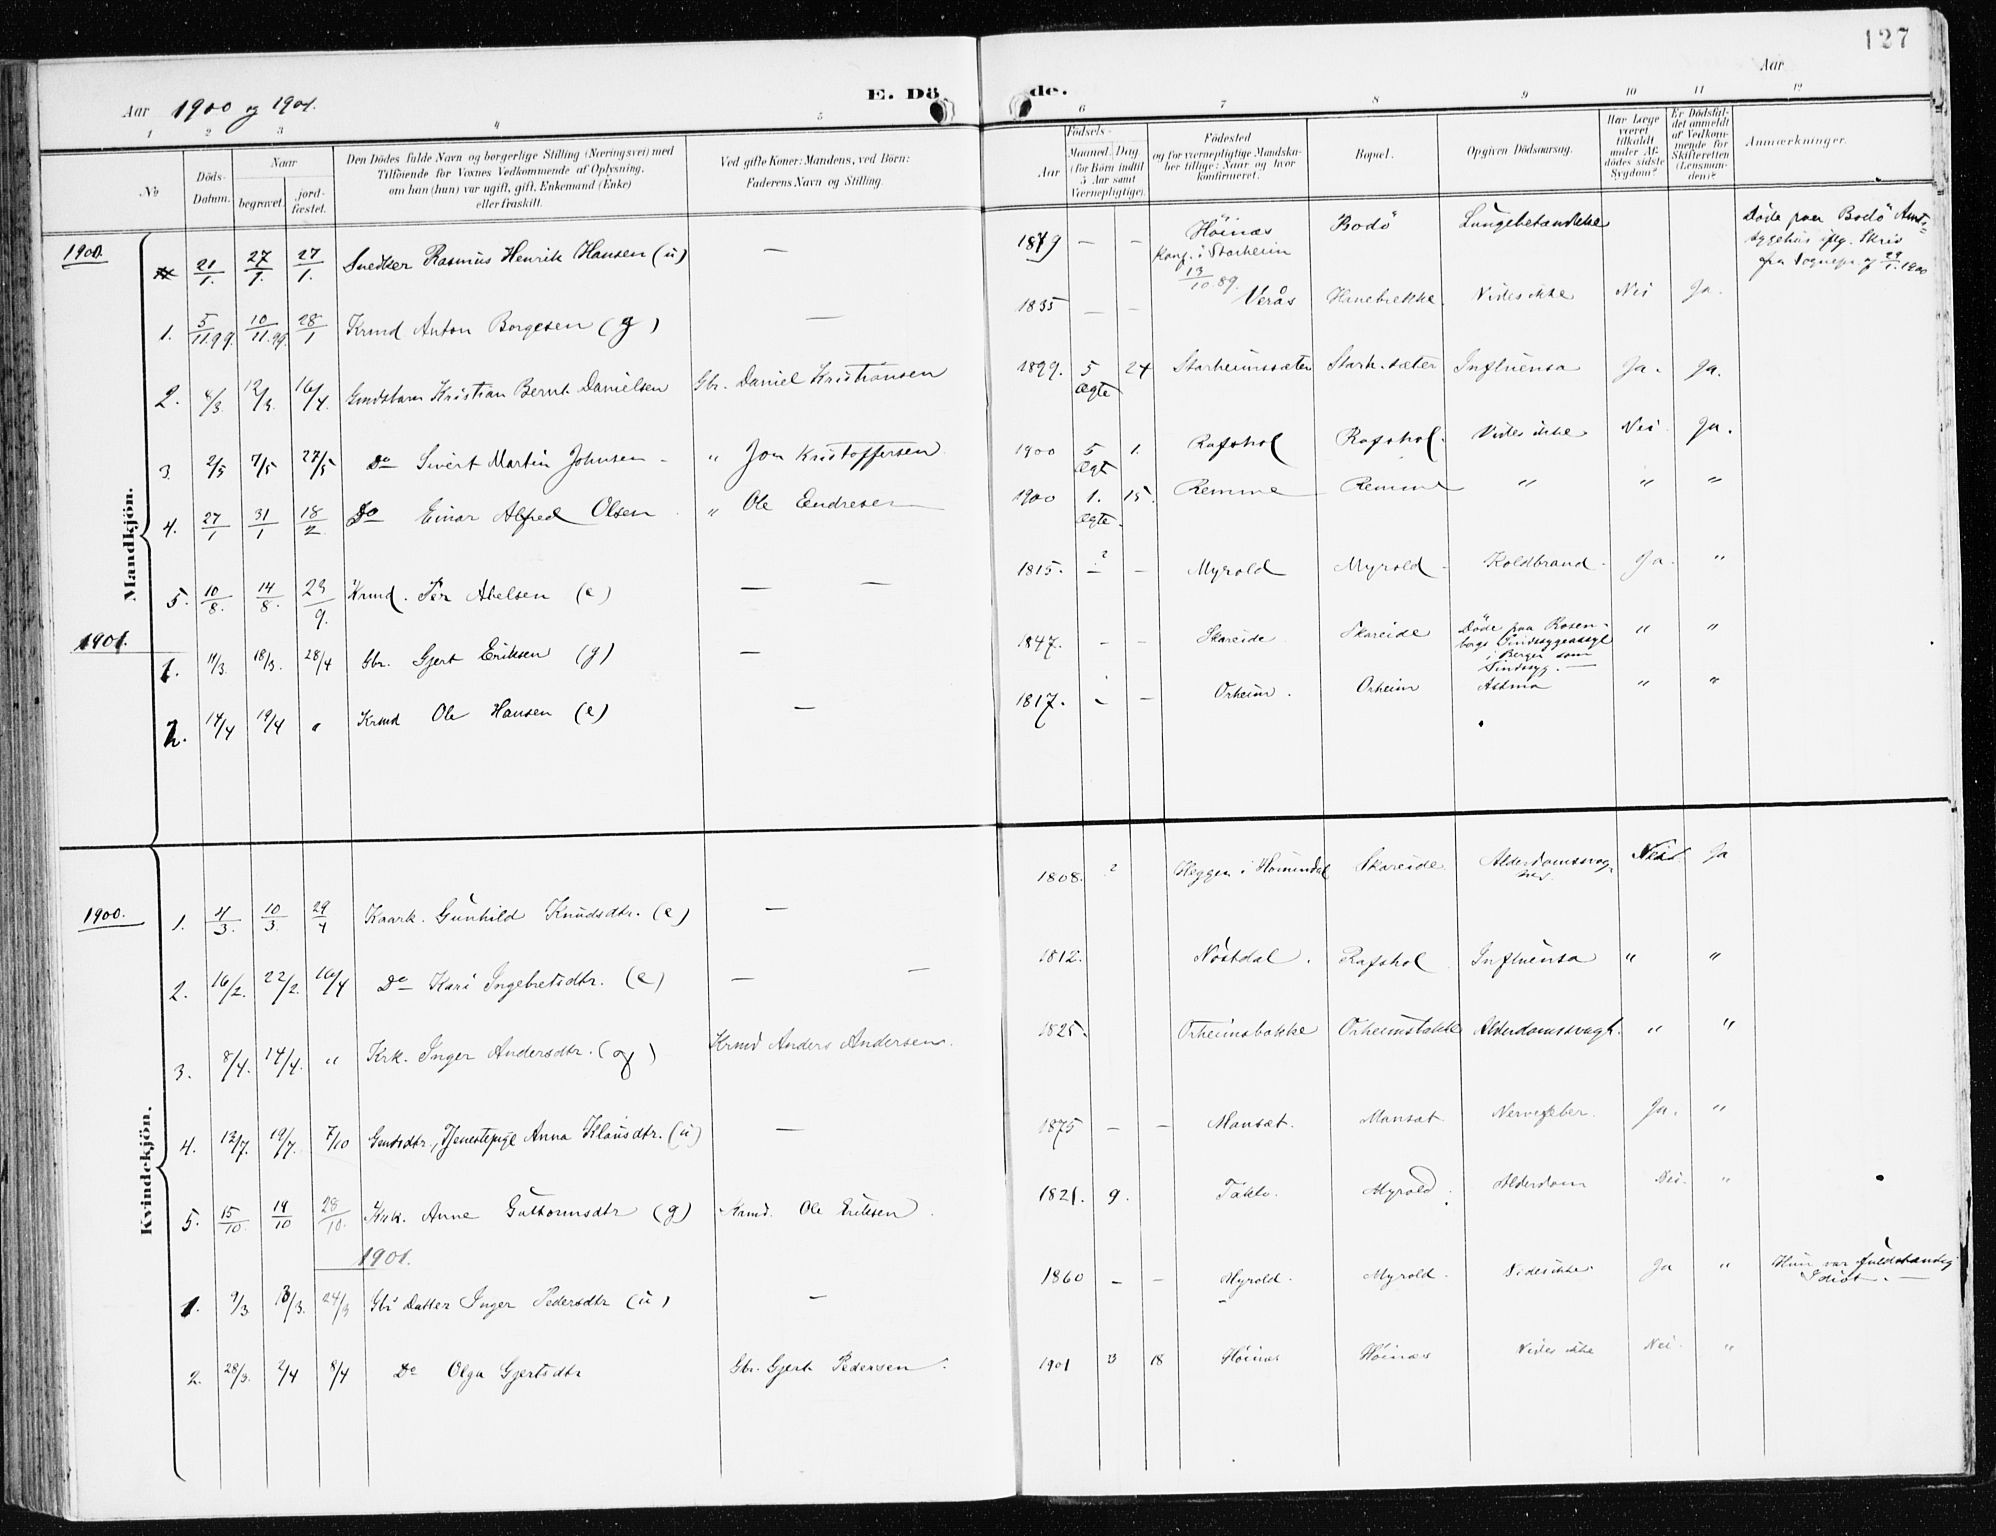 127
Aar 1900 og 1901.
E. Döde.
Aar
1 2 3 4 5 6 7 8 9 10 11 12
No
Döds-Datum.
Naar
begravet.
jord-fæstet.
Den Dödes fulde Navn og borgerlige Stilling (Næringsvei) med
Tilföiende for Voxnes Vedkommende af Oplysning,
om han (hun) var ugift, gift, Enkemand (Enke)
eller fraskilt.
Ved gifte Koner: Mandens, ved Börn:
Faderens Navn og Stilling.
Födsels-
Aar
Maaned. Dag
(for Börn indtil
5 Aar samt
Værnepligtige).
Födested
og for værnepligtige Mandska-
ber tillige: Naar og hvor
konfirmeret.
Bopæl.
Opgiven Dödsaarsag.
Har Læge
været
tilkaldt
under Af-
dödes sidste
Sygdom?
Er Dödsfal-
det anmeldt
af Vedkom-
mende for
Skifteretten
(Lensman-
den)?
Anmærkninger.
Mandkjön.
1900.
21/1. 27/1. 27/1. Snedker Rasmus Henrik Hansen (u) — 1879 — — Höinæs Konf. i Starheim 13/10 89. Bodö Lungebetændelse Döde paa Bodö Amts-
sygehus iflg. Skriv
fra Sognepr. af 29/1. 1900
1. 5/11.99. 10/11.99. 28/1 Krmd Anton Borgesen (g) — 1835 — — Verås Hanebrekke. Vides ikke Nei Ja.
2. 4/3. 12/3. 16/4. Gmdsbarn Kristian Bernt Danielsen Gbr. Daniel Kristiansen 1899. 5 24 Ægte Starheimssæter Starh.sæter Influensa Ja. Ja.
3. 2/5 7/5 27/5 Do Sivert Martin Johnsen " Jon Kristoffersen. 1900 5 1. Ægt Rafshol Rafshol. Vides ikke Nei. Ja.
4. 27/1 31/1 18/2 Do Einar Alfred Olsen " Ole Endresen 1900 1. 15. Ægte. Remme Remme " " "
5. 10/8. 14/8. 23/9. Krmd. Per Abelsen (e) — — 1815. ? — Myrold Myrold. Koldbrand. Ja. "
1901.
1. 11/3. 18/3. 28/4 Gbr. Gjert Eriksen (g) — 1847. - - Skareide Skareide Döde paa Rosen-
bergs Sindssygeasyl
i Bergen som
Sindssyg. " "
2. 14/4 19/4 " Krmd Ole Hansen (e) — 1817. — Orheim. Orheim Astma " "
Kvindekjön.
1900.
1. 4/3. 10/3. 29/4 Kaark. Gunhild Knudsdtr. (e) — 1808. ? Heggen i Hornindal Skareide Alderdomssvag-
hed. Nei. Ja
2. 16/2. 22/2. 16/4 Do Kari Ingebretsdtr. (e) — — 1812. Nöstdal. Rafshol Influensa " "
3. 8/4. 14/4. " Krk. Inger Andersdtr. (g) Krmd Anders Andersen. 1825. Orheimsbakke Orheimsbakke Alderdomssvagh. " "
4. 12/7. 19/7. 7/10 Gmdsdtr., Tjenestepige Anna Klausdtr. (u) — 1875 — — Mansæt. Mansæt. Nervefeber. Ja. "
5. 15/10. 19/10 28/10. Krk. Anne Guttormsdtr (g) Krmd. Ole Eriksen. 1821. 9. Taklo. Myrold. Alderdom Nei. "
1901.
1. 9/3. 13/3. 24/3 Gbr Datter Inger Pedersdtr (u) — 1860 — — Myrold. Myrold. Vides ikke. Ja " Hun var fuldstændig
Idiot. —
2. 28/3. 2/4 8/4 Do Olga Gjertsdtr Gbr. Gjert Pedersen. 1901 3 18 Höinæs Höinæs Vides ikke Nei. "